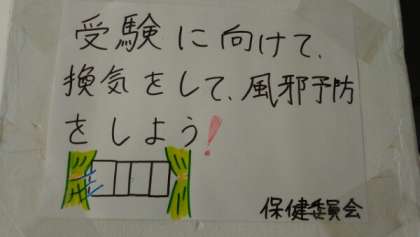 受験に向けて、
換気をして、風邪予防
をしよう!
保健委員会